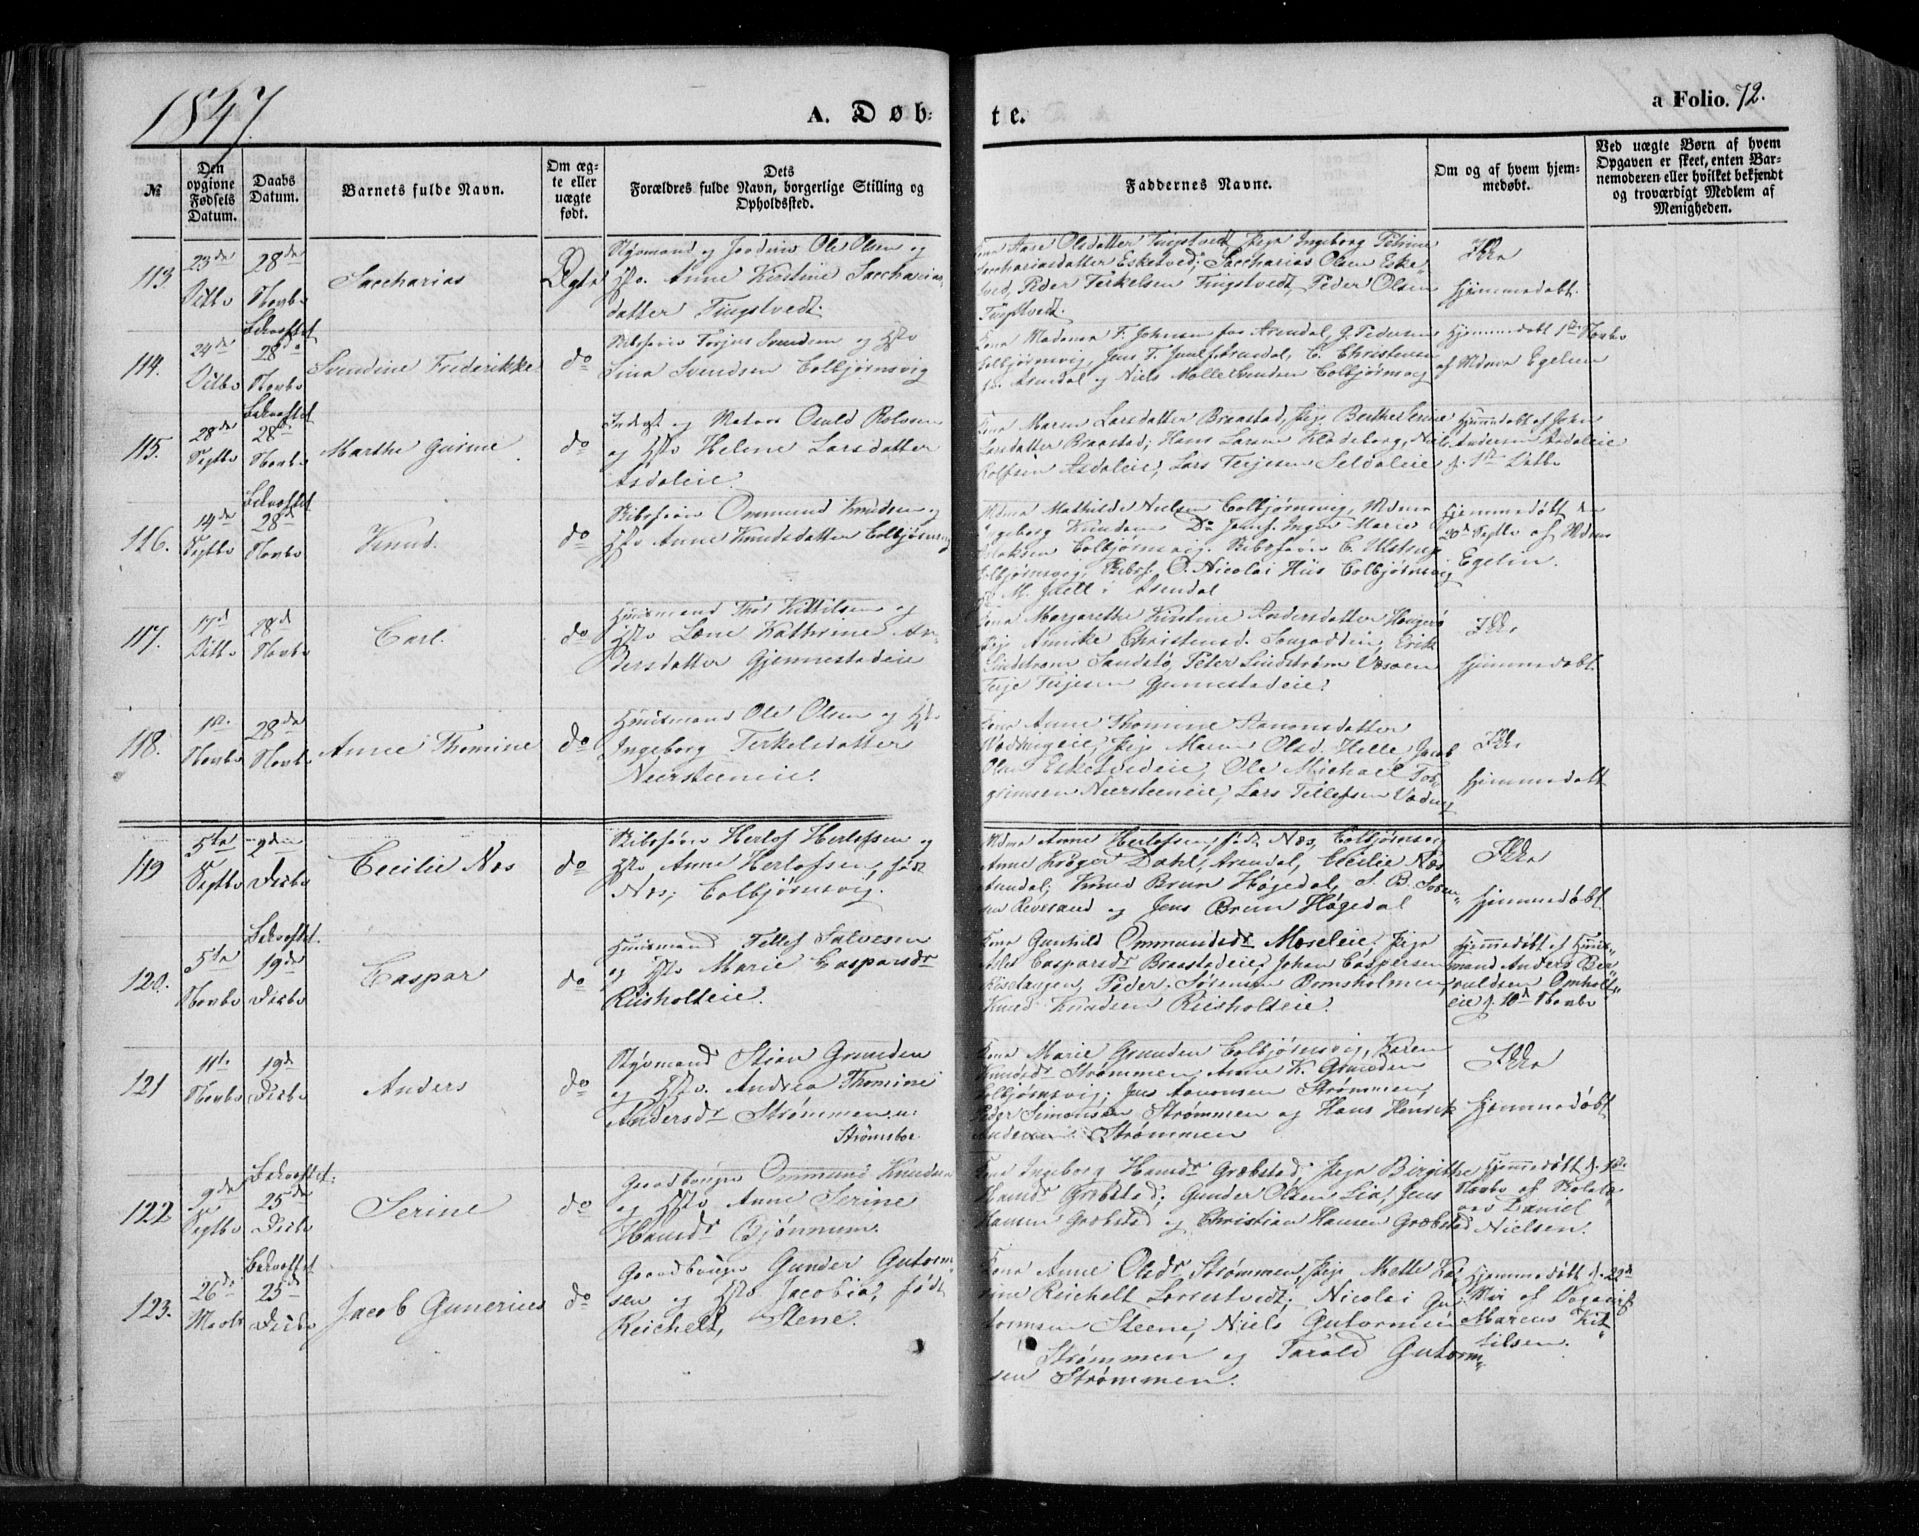 1847.
A. Døb-
te.
a Folio. 72.
№
Den opgivne Fødsels Datum.
Daabs Datum.
Barnets fulde Navn.
Om ægte eller uægte født.
Dets Forældres fulde Navn, borgerlige Stilling og Opholdssted.
Faddernes Navne.
Om og af hvem hjemmedøbt.
Ved uægte Børn af hvem Opgaven er skeet, enten Barnemoderen eller hvilket bekjendt og troværdigt Medlem af Menigheden.
113.
23de
Octbr
28de
Novbr
Saccharias
Ægte
Styrmand og Ole Olsen og
Hstr. Anne Kirstine Saccharias
datter Tingstvedt.
Kona Aase Olsdatter Tingstvedt, Pige Ingeborg Petrine
Sacchariasdatter Esketved, Saccharias Olsen Eske
tved, Peder Terkelsen Tingstvedt, Peder Olsen
Tingstvedt.
Ikke
hjemmedøbt.
114.
24de
Octbr
Bekræftet
28de
Novbr
Svendine Frederikke
do
Skibsfører Torjus Svendsen og Hstr
Sina Svendsen Colbjørnsvig
Kona Madame F. Johnsen fra Arendal, G. Pedersen
Colbjørnsvig, Jens F. Juell Arendal, C. Christensen
fra Arendal og Niels Møller Svendsen Colbjørnsvig
Hjemmedøbt 1ste Novbr
af Mdme Egelien
115.
28de
Septbr
Bekræftet
28de
Novbr
Marthe Gurine
do
Inderst og Matros Osuld Rolvsen
og Hstr Helene Larsdatter
Asdaleie.
Kona Maren Larsdatter Braastad, Pige Berthe Serine
Larsdatter Braastad, Hans Larsen Klodeborg, Niels
Rolfsen Asdaleie, Lars Terjesen Seldaleie
Hjemmedøbt af John
Andersen Asdaleie
d. 1ste Octbr
116.
14de
Septbr
Bekræftet
28de
Novbr
Knud.
do
Skibsfører Ommund Knudsen og
Hstr Anne Knudsdatter Colbjørnsvig
Mdme Mathilde Nielsen Colbjørnsvig, Mdme
Ingeborg Knudsen Do Jomf. Inger Marie
Colbjørnsvig. Skibsfører C. Ulstrup
Colbjørnsvig, Skibsf. O. Nicolai Hiis Colbjørnsvig
M. Juell i Arendal
Hjemmedøbt den
20de Septbr af Mdme
Egelin.
117.
17de
Octbr
28de
Novbr
Carl.
do
Huusmand Thor Kittilsen og
Hstr Læne Kathrine An
dersdatter Gjennestadeie
Kona Margarethe Kirstine Andersdatter Haugerø
Pige Annike Christensd. Songeddin, Erik
Lindstrøm Sandstø, Peter Lindstrøm Vesøen
Terje Terjesen Gjennestadeie.
Ikke
hjemmedøbt.
118.
1ste
Novbr
28de
Novbr
Anne Thomine
do
Huusmand Ole Olsen og Hstr
Ingeborg Terkelsdatter
Neersteeneie.
Kona Anne Thomine Aanonsdatter
Vodningeie, Pige Maren Olsd. Helle, Jacob
Olsen Eskestvedeie, Ole Michael Tor
grimsen Neersteeneie, Lars Tellefsen
Ikke
hjemmedøbt
119
5te
Septbr
2den
Decbr
Cecilie Næs
do
Skibsfører Herlof Herlofsen og
Hstr Anne Herlofsen, født
Næs, Colbjørnsvig.
Mdme Anne Herlofsen født Næs, Colbjørnsvig
Anne Krøger Dahl, Arendal, Cecilie Næs
Arendal, Knud Brun Høgedal, S. B. Søren
sen Revesand og Jens Brun Høgedal
Ikke
hjemmedøbt.
120.
5te
Novbr
Bekræftet.
19de
Decbr
Caspar
do
Huusmand Tellef Salvesen
og Hstr Marie Casparsdr
Riisholteie.
Kona Gunhild Ommundsdr Mæseleie, Pige
Casparsdr Braastadeie, Johan Caspersen
Peder Sørensen Bomsholmen,
Knud Knudsen Riisholteie.
Hjemmedøbt af Huus
mand Anders Ber
uldsen Omholt
eie d. 10de Novbr
121
11te
Novbr
19de
Decbr
Anders
do
Styrmand Stian Grunden
og Hstr. Andrea Thomine
Andersdr Strømmen u:
Strømsboe
Kona Marie Grunden Colbjørnsvig, Karen
Knudsdr Strømmen, Anne K. Grunden
Colbjørnsvig, Jens Aanonsen Strømmen,
Peder Simonsen Strømmen og Hans Henrik
Andersen Strømmen
Ikke
hjemmedøbt
122
9de
Septbr
Bekræftet.
25de
Decbr
Serine
do
Gaardbruger Ommund Knudsen
og Hstr Anne Serine
Hansdr Bjønnum.
Kona Ingeborg Hansdr Græbstad, Pige Birgithe
Hansdr Græbstad, Gunder Olsen Lia, Jens
Hansen Græbstad og Christian Hansen Græbstad
Hjemmedøbt d. 1ste
Novbr af Skolelæ
rer Daniel
Nielsen.
123.
26de
Marts
Bekræftet
25de
Decbr
Jacob Gunerius
do
Gaardbruger Gunder Gutorm
sen og Hstr Jacobia, født
Reichelt, Stene.
Kona Anne Olsdr Strømmen, Pige Mette Ka
rine Reichelt Lorrestvedt, Nicolai Gu
tormsen Steene, Niels Gutormsen
Strømmen og Tarald Gutorm
sen Strømmen.
Hjemmedøbt d. 22de
Mai af
Marcus Kit
tilsen.